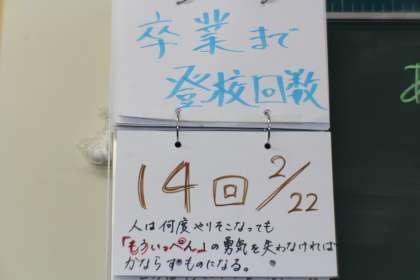 卒業まで
登校回数
14回 2/22
人は何度やりそこなっても
「もういっぺん」の勇気を失わなければ
かならずものになる。